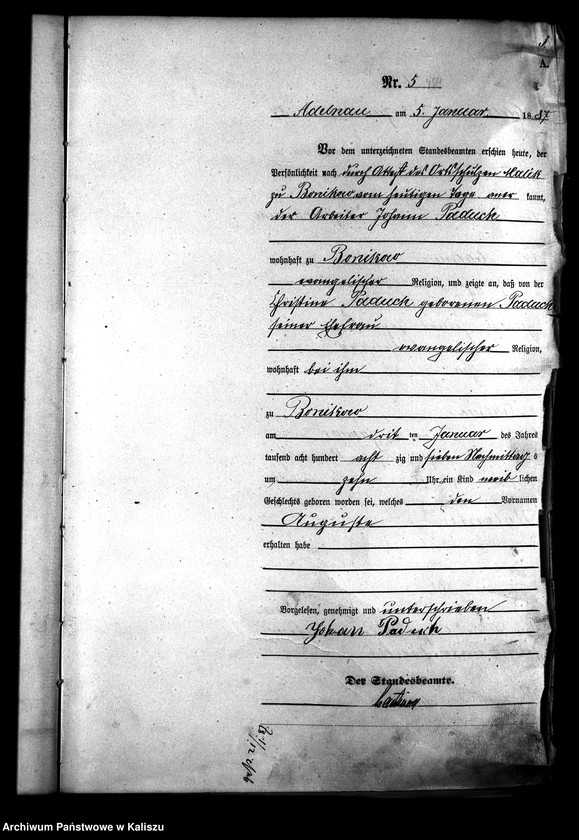 A.
Nr. 5
Adelnau am 5. Januar 1887
Vor dem unterzeichneten Standesbeamten erschien heute, der
Persönlichkeit nach durch Attest des Ortsschulzen Malik
zu Bonikow vom heutigen Tage aner kannt,
der Arbeiter Johann Paduch
wohnhaft zu Bonikow
evangelischer Religion, und zeigte an, daß von der
Christine Paduch geborenen Paduch
seiner Ehefrau
evangelischer Religion,
wohnhaft bei ihm
zu Bonikow
am drit ten Januar des Jahres
tausend acht hundert acht zig und sieben Nachmittag s
um zehn Uhr ein Kind weib lichen
Geschlechts geboren worden sei, welches den Vornamen
Auguste
erhalten habe
Vorgelesen, genehmigt und unterschrieben
Johan Paduch
Der Standesbeamte.
Archiwum Państwowe w Kaliszu